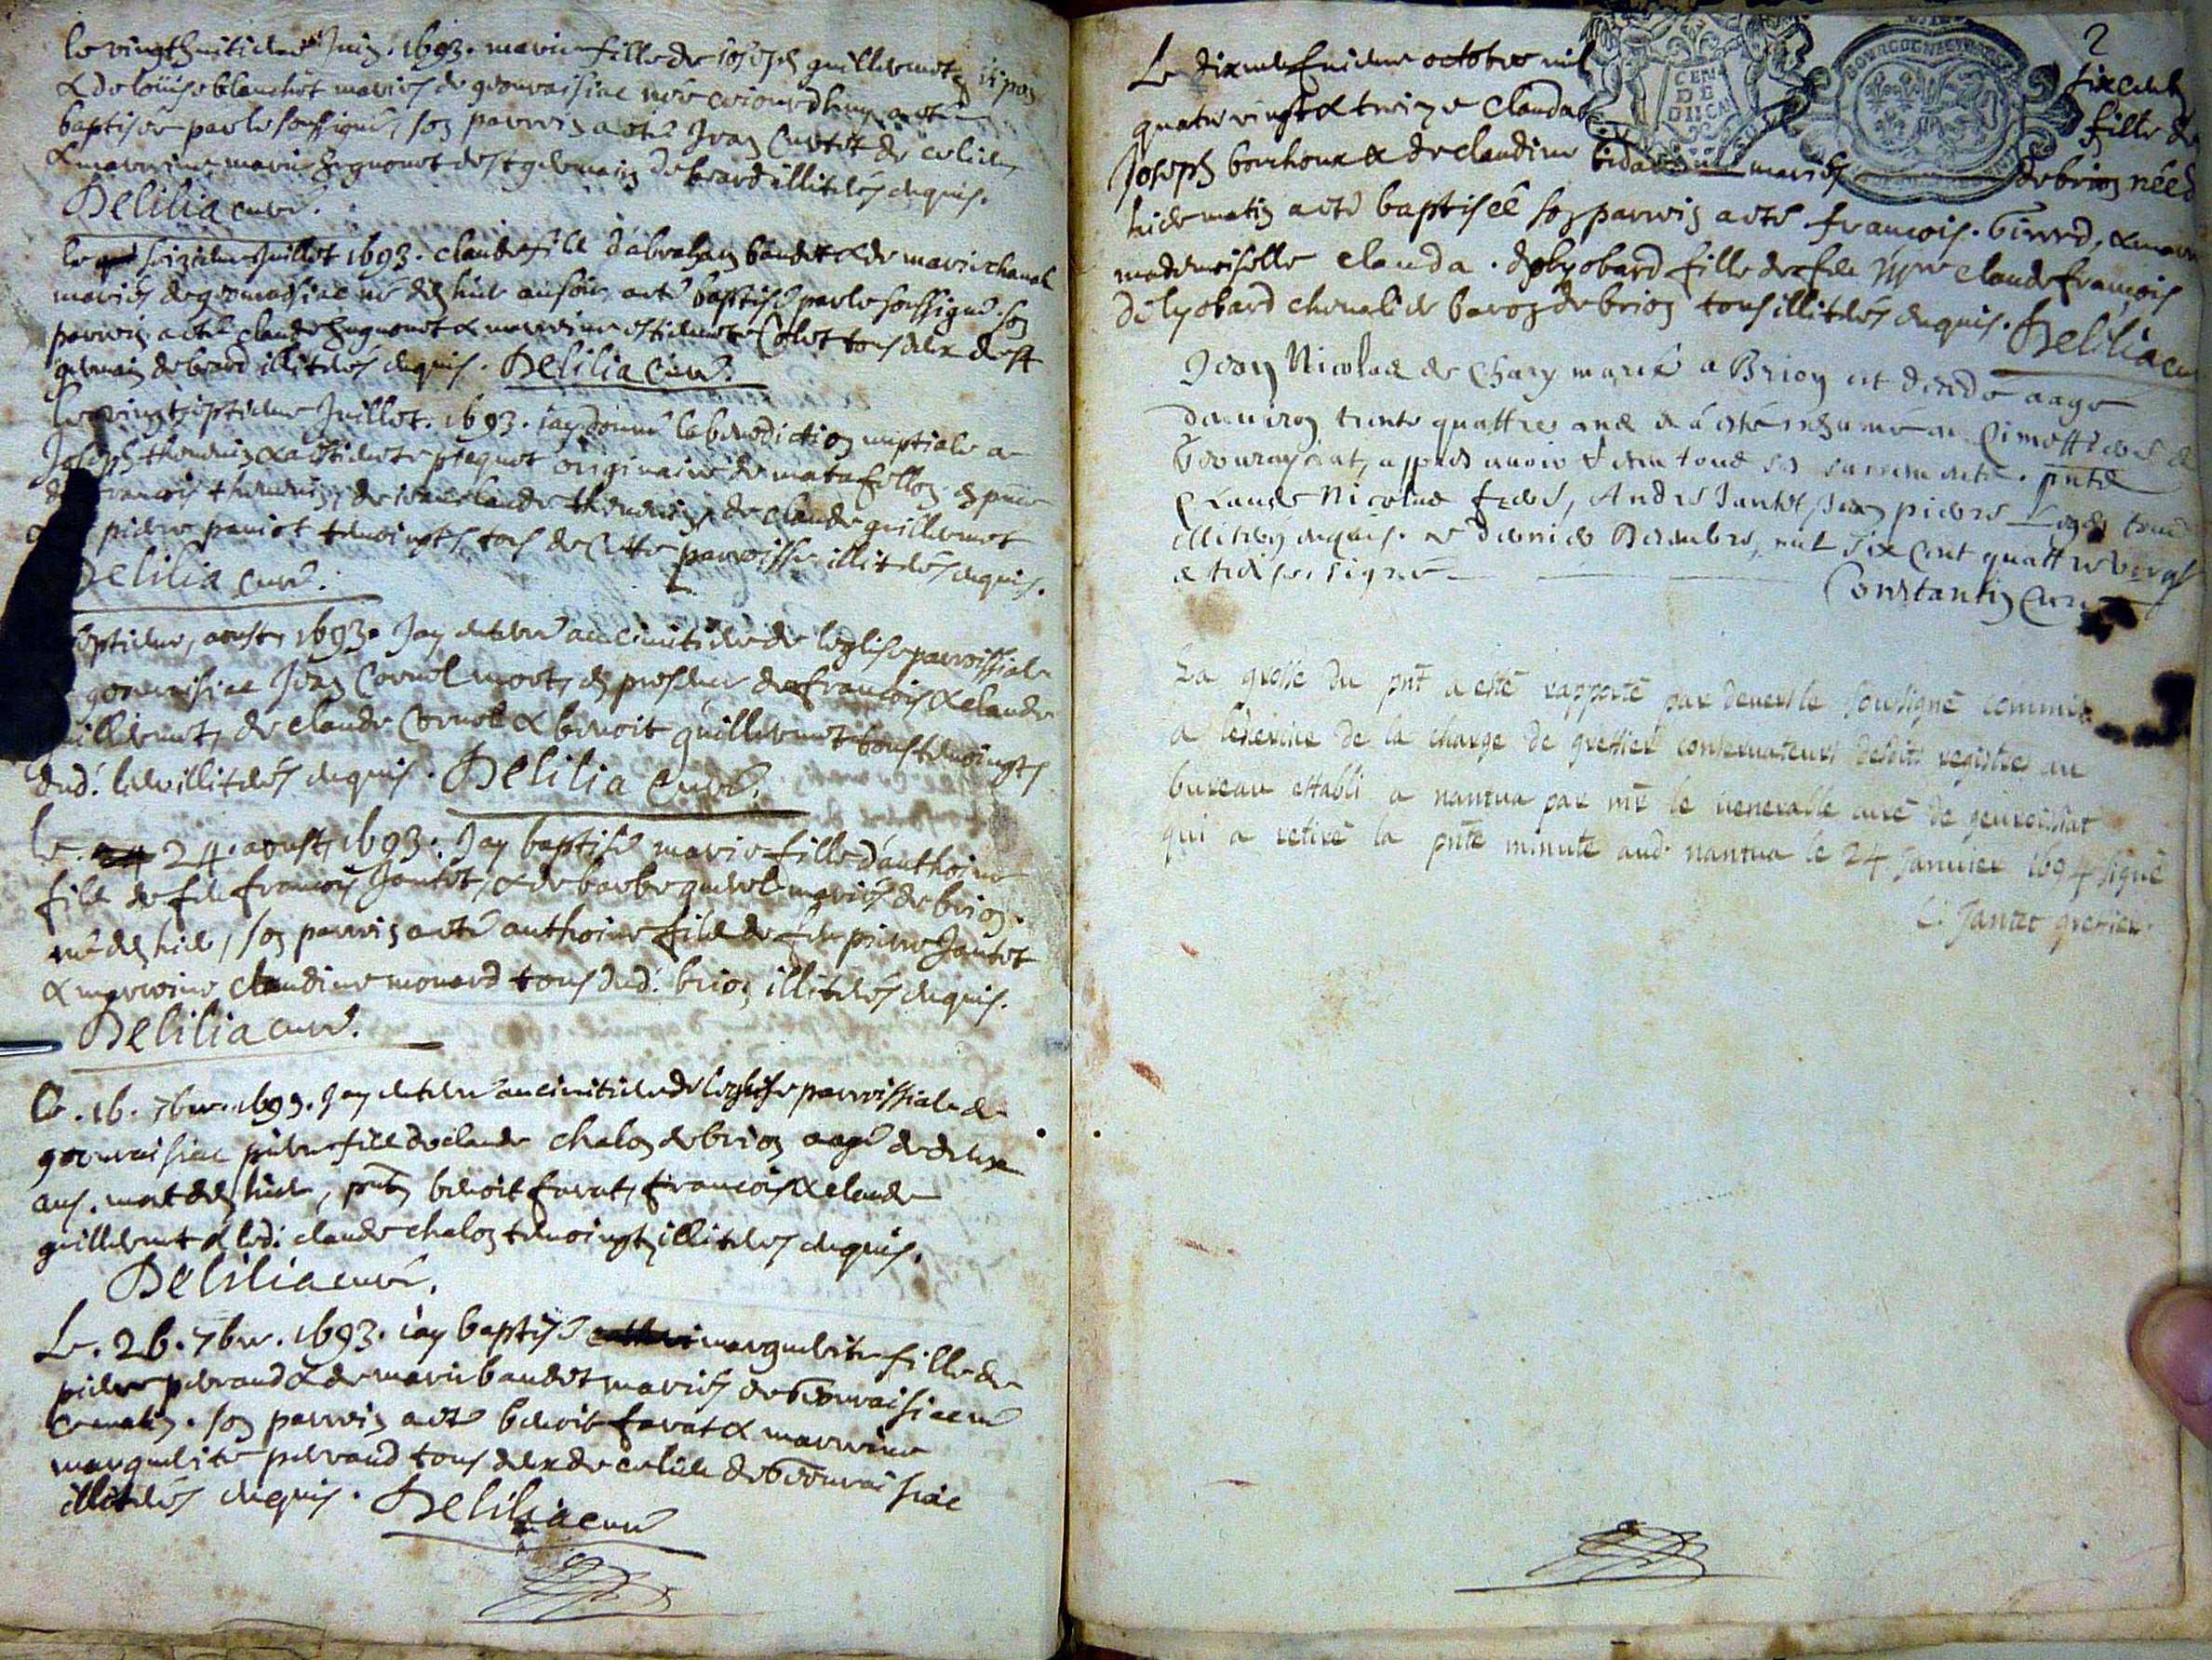 le vingthuitieme Juin. 1693. marie fille de joseph guillermet
& de louise blanchet mariés de geovraissiac née ce jourdhuy a été
baptisée par le soussigné, son parrin a été Jean Curtet de ce lieu,
& marrine marie huguenet de st germain de beard illiterés enquis.
Delilia curé.
le seizieme Juillet 1693. claude fils d'abraham baudet & de marie
mariés de geovraissiac né dez hier au soir, a été baptisé par le soussigné son
parrin a été claude huguenet & marrine estiennete Colet tous deux de st
germain de beard illiterés enquis. Delilia Curé.
le vingtseptieme Juillet. 1693. jay donné la benediction nuptiale a
Joseph thevenin & a estiennete pacquet originaire de matafellon, en pnce
de francois thevenin, de jean claude thevenin, de claude guillermet
& pierre paniot temoingts tous de cette parroisse illiterés enquis.
Delilia curé.
septieme, aoust, 1693. Jay enterré au cimitiere de leglise parroissiale
geovraissiac Jean Cornet mort, en presence de francois & claude
guillermet, de claude Cornet & benoit guillermet tous temoingts
dud. lieu illiterés enquis. Delilia Curé.
Le 24. aoust, 1693. Jay baptisé marie fille d'anthoine
fils de feu francois Jantet, & de barbe mariés de brion.
né dez hier, son parrin a été anthoine fils de feu pierre Jantet
& marrine claudine monard tous dud. brion illiterés enquis.
Delilia curé.
Le. 16. 7bre. 1693. Jay enterré au cimitiere de leglise parroissiale de
geovraissiac pierre fils de claude chalon de brion aagé de deux
ans. mort dez hier, pnts benoit favat, francois & claude
guillermet & led. claude chalon temoingts illiterés enquis.
Delilia curé.
Le. 26. 7bre. 1693. jay baptisé marguerite fille de
pierre perraud & de marie baudet mariés de Geovraissiac né
ce matin. son parrin a été benoit favat & marrine
marguerite perraud tous deux de ce lieu de Geovraissiac
illiterés enquis. Delilia curé
2
Le dixneufvieme octobre mil six cent
quatre vingt & treize claudaz fille de
Joseph bouchoux & de claudine mariés de brion née
hier matin a été baptisée son parrin a été francois. Girard, & marrine
mademoiselle clauda. de lyobard fille de feu claude francois
de lyobard chevalier baron de brion tous illiterés enquis. Delilia cu
Jean Nicolas de Chary marié a Brion est decedé aagé
denviron trente quattre ans & a esté inhumé au Cimettiere de
Geovrayssiat, appres avoir receu tous ses sacrements. pntz
Claude Nicolas freres, Andre Jantet, Jean pierre tous
illiterés enquis. ce dernier Decembre, mil six cent quattre vingt
& treise signé
Constantin Curé
La grosse du pnt a esté rapporté par devers le soussigné commis
a lexercice de la charge de greffier conservateurs desdits registres au
bureau establi a nantua par mre le venerable curé de geuvraissiat
qui a retiré la pnte minute aud. nantua le 24 Janvier 1694 signé
C. Jantet greffier.